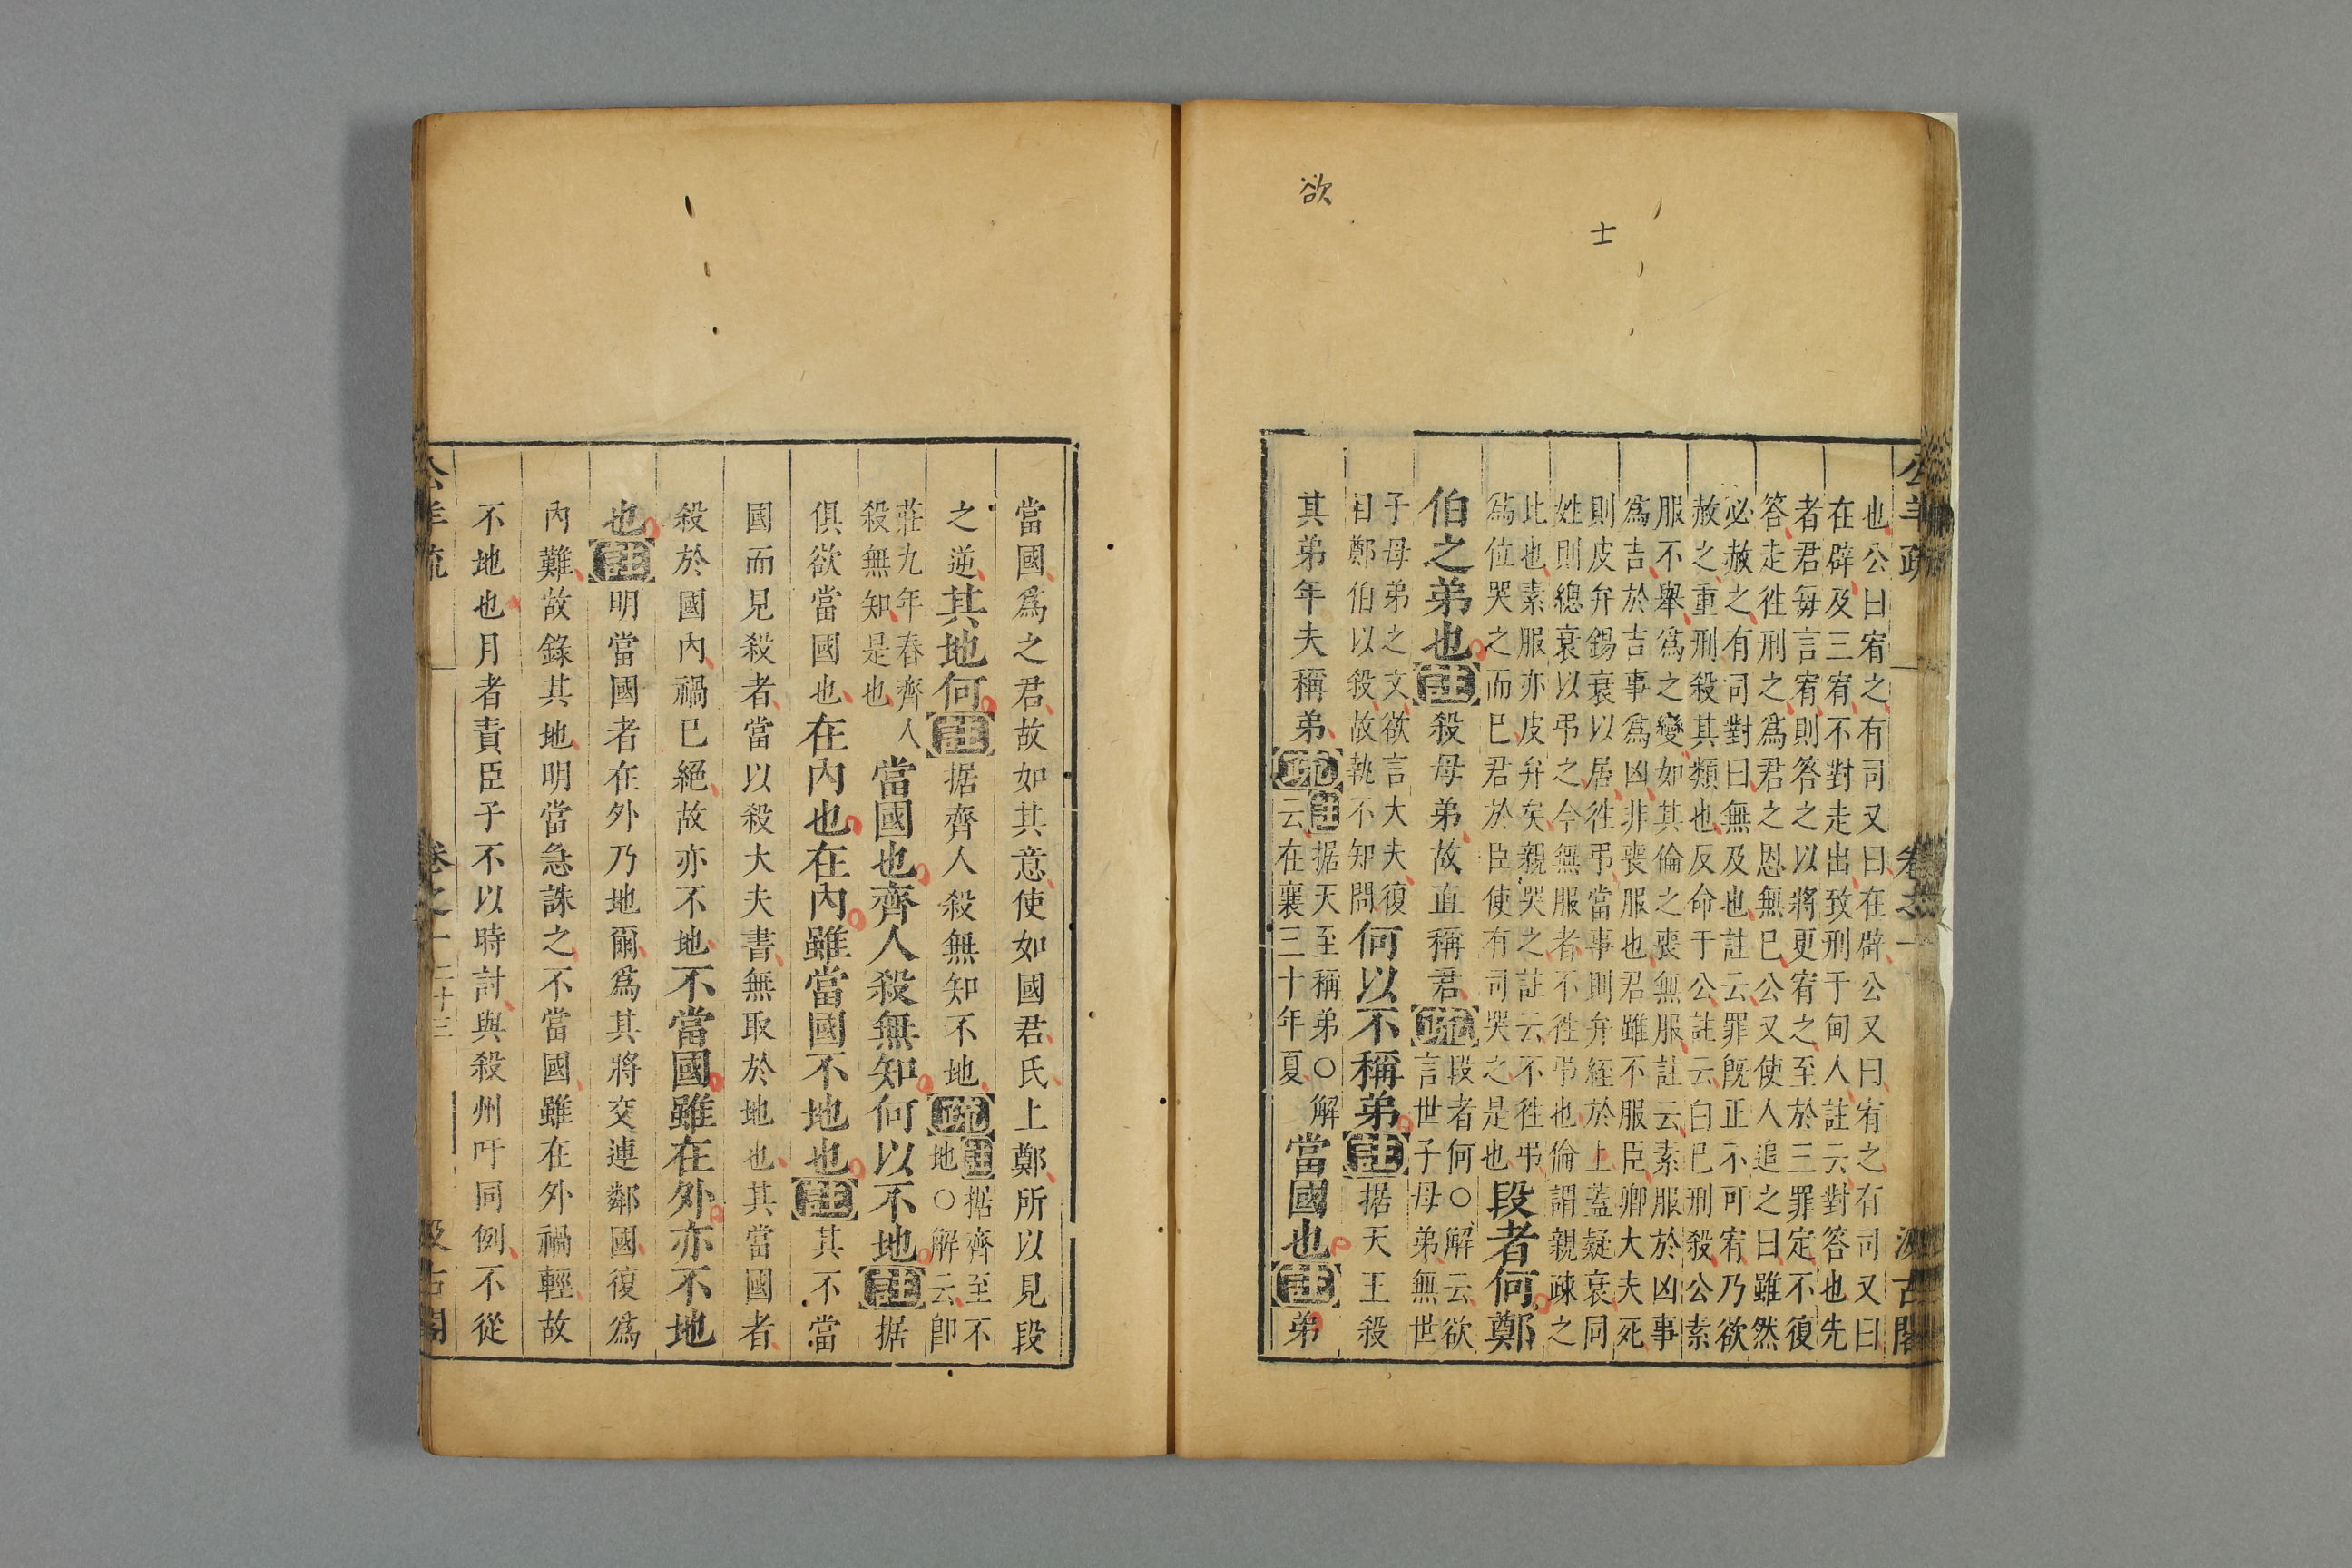 欲
士
公羊疏 卷之一 汲古閣
也公曰宥之有司又曰在辟公又曰宥之有司又曰
在辟及三宥不對走出致刑于甸人註云對答也先
者君每言宥則答之以將更宥之至於三罪定不復
答走往刑之爲君之恩無已公又使人追之曰雖然
必赦之有司對曰無及也註云罪旣正不可宥乃欲
赦之重刑殺其類也反命于公註云白已刑殺公素
服不舉爲之變如其倫之喪無服註云素服於凶事
爲吉於吉事爲凶非喪服也君雖不服臣卿大夫死
則皮弁錫衰以居往弔當事則弁絰於上蓋疑衰同
姓則緦衰以弔之今無服者不往弔也倫謂親疎之
比也素服亦皮弁矣親哭之註云不往弔
爲位哭之而已君於臣使有司哭之是也
段者何鄭
伯之弟也註殺母弟故直稱君疏段者何○解云欲
言世子母弟無世
子母弟之文欲言大夫復
曰鄭伯以殺故執不知問
何以不稱弟註据天王殺
其弟年夫稱弟疏註据天至稱弟○解
云在襄三十年夏
當國也註弟
當國爲之君故如其意使如國君氏上鄭所以見段
之逆其地何註据齊人殺無知不地疏註据齊至不
地○解云卽
莊九年春齊人
殺無知是也
當國也齊人殺無知何以不地註据
俱欲當國也在內也在內雖當國不地也註其不當
國而見殺者當以殺大夫書無取於地也其當國者
殺於國內禍已絕故亦不地不當國雖在外亦不地
也註明當國者在外乃地爾爲其將交連鄰國復爲
內難故錄其地明當急誅之不當國雖在外禍輕故
不地也月者責臣子不以時討與殺州吁同例不從
公羊疏 卷之一 二十三 汲古閣